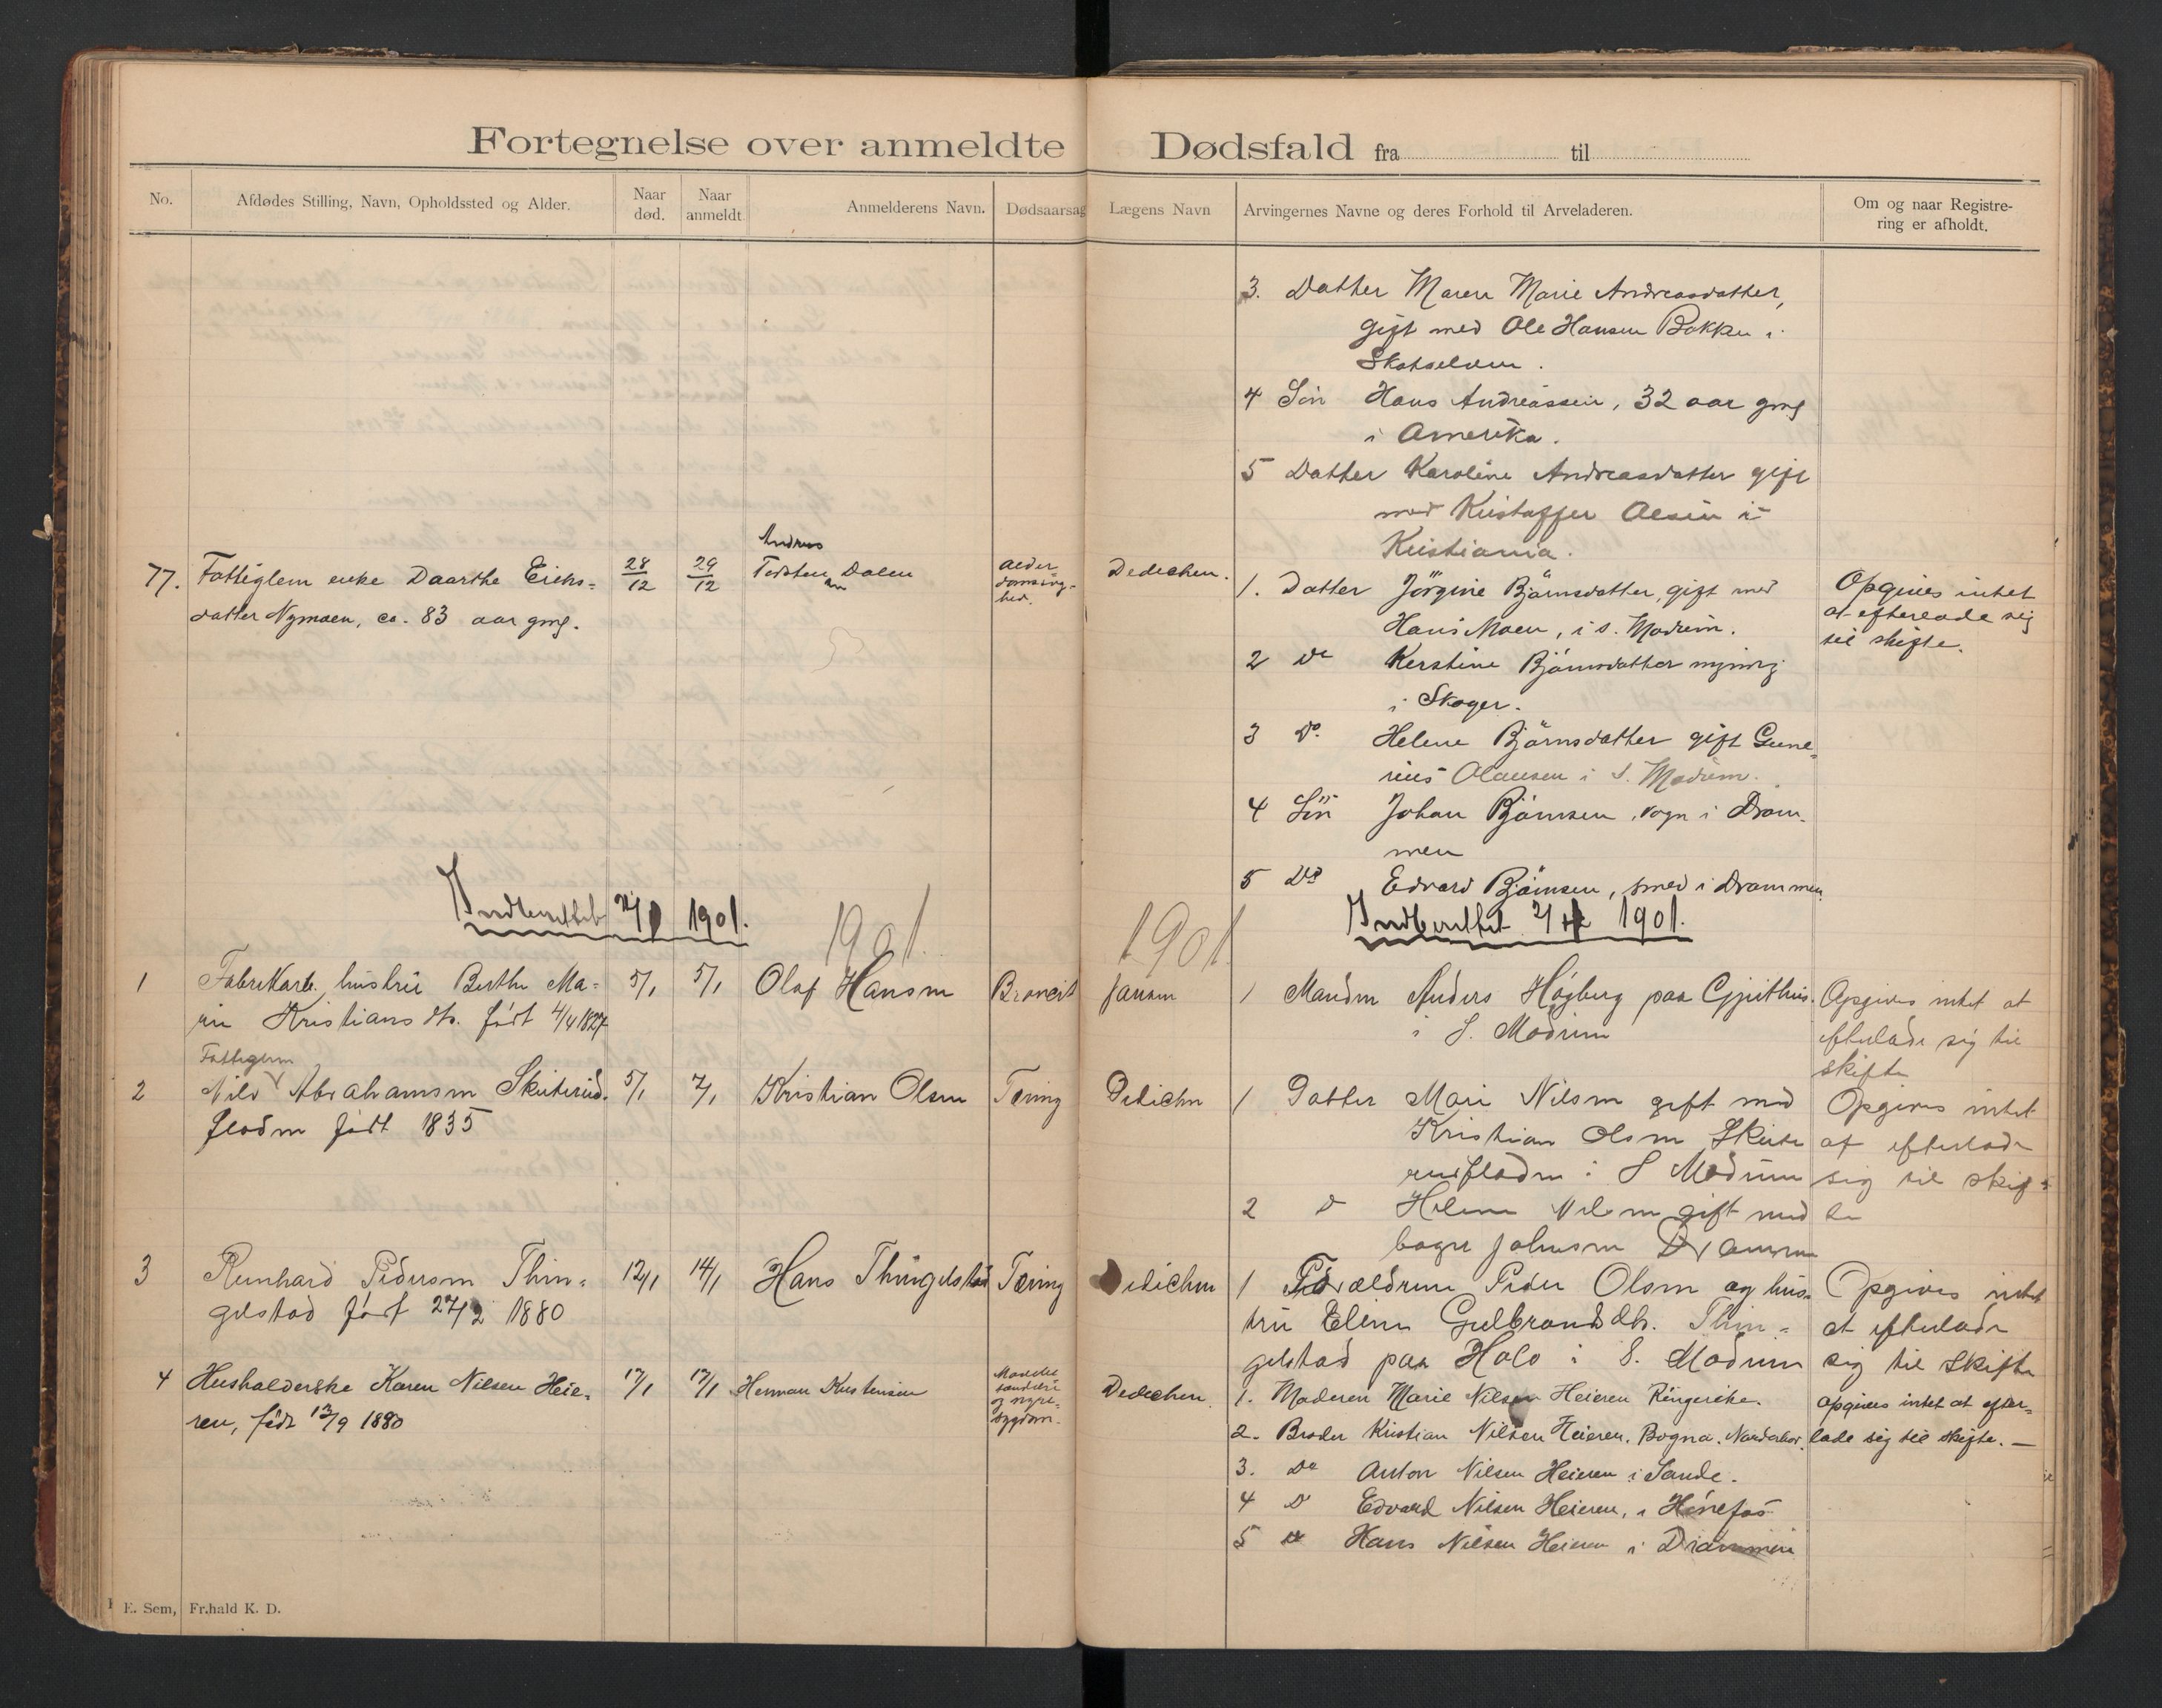 Fortegnelse over anmeldte Dødsfald fra til
No. Afdødes Stilling, Navn, Opholdssted og Alder. Naar død. Naar anmeldt Anmelderens Navn. Dødsaarsag Lægens Navn Arvingernes Navne og deres Forhold til Arveladeren. Om og naar Registrering er afholdt.
3. Datter Maren Marie Andreasdatter,
gift med Ole Hansen Bakken i
Skotselven.
4 Sön Hans Andreassen, 32 aar gml
i Amerika.
5 Datter Karoline Andreasdatter gift
med Kristoffer Olsen i
Kristiania.
77. Fattiglem enke Daarthe Eriks=
datter Nymoen, ca. 83 aar gml.
28/12 29/12
Andreas
Torsten Dalen
Alder
domssvag-
hed.
Dedichen.
1. Datter Jörgine Björnsdatter, gift med
Hans Moen, i S. Modum.
2 Do Kerstine Björnsdatter myndig
i Skoger.
3 Do. Helene Björnsdatter gift Gune=
rius Olausen i S. Modum.
4 Sön Johan Björnsen, vogn i Dram-
men
5 Do Edvard Björnsen, smed i Drammen.
Opgives intet
at efterlade sig
til skifte.
Indberettet 1901.
1901.
1901.
Indberettet 1901.
1 Fabrikarb. hustru Berthe Ma=
rie Kristiansdtr. født 4/4 1827
5/1 5/1 Olaf Hansen Broncit Jansen
1 Manden Anders Høgberg paa Gjeithus.
i S. Modum
Opgives intet at
efterlade sig til
skifte
Fattiglem
2 Nils Abrahamsen Skuterud.
floden født 1835
5/1 7/1 Kristian Olsen Tæring Dedichen
1 Datter Mari Nilsen gift med
Kristian Olsen Skute
rudfloden i S Modum
2 D Helene Nilsen gift med
bager Johnsen Drammen
Opgives intet
at efterlade
sig til skif=
te
3 Reinhard Pedersen Thin=
gelstad født 27/2 1880
12/1 14/1 Hans Thingelstad Tæring Dedichen
1 Forældrene Peder Olsen og hus=
tru Eline Gulbrandsdtr. Thin=
gelstad paa Holo i S. Modum
Opgives intet
at efterlade
sig til skifte
4 Husholderske Karen Nilsen Heie=
ren, født 13/9 1880
17/1 17/1 Herman Kristensen
og nyre-
sygdom.
Dedichen.
1. Moderen Marie Nilsen Heieren Ringerike.
2. Broder Kristian Nilsen Heieren, Bogna, Norderhov.
3. Do Anton Nilsen Heieren i Sande.
4 D Edvard Nilsen Heieren, i Hönefos
5 D Hans Nilsen Heieren i Drammen
opgives intet at efter=
lade sig til skifte. —
E. Sem, Fr.hald K. D.